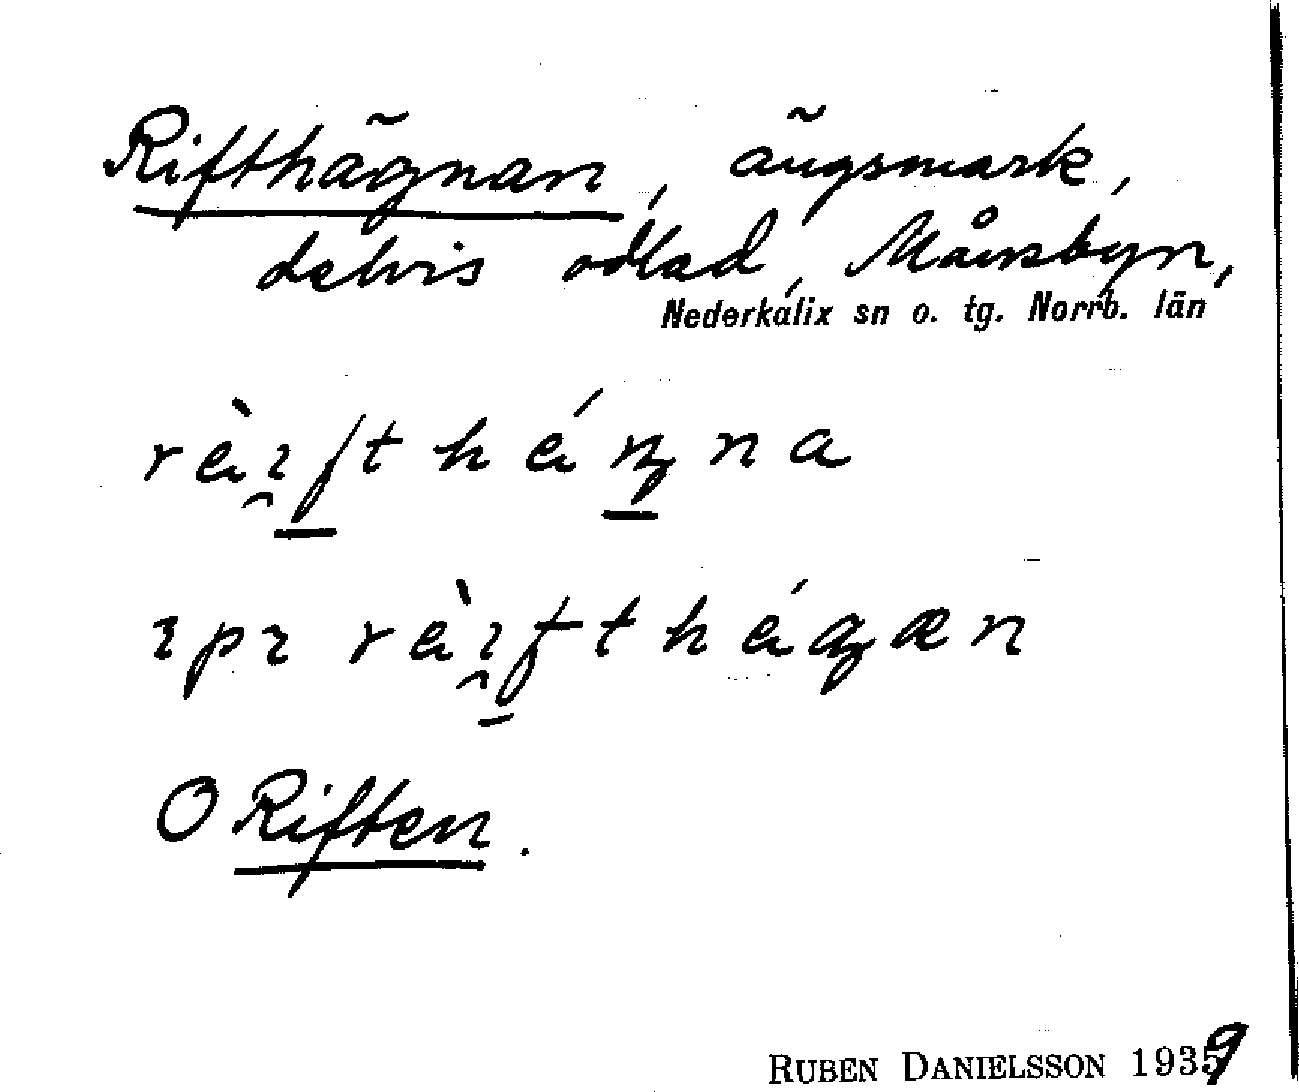 Rifthägnan, ängsmark,
delvis odlad, Månsbyn,
Nederkalix sn o. tg. Norrb. län
O Riften.
RUBEN DANIELSSON 1939